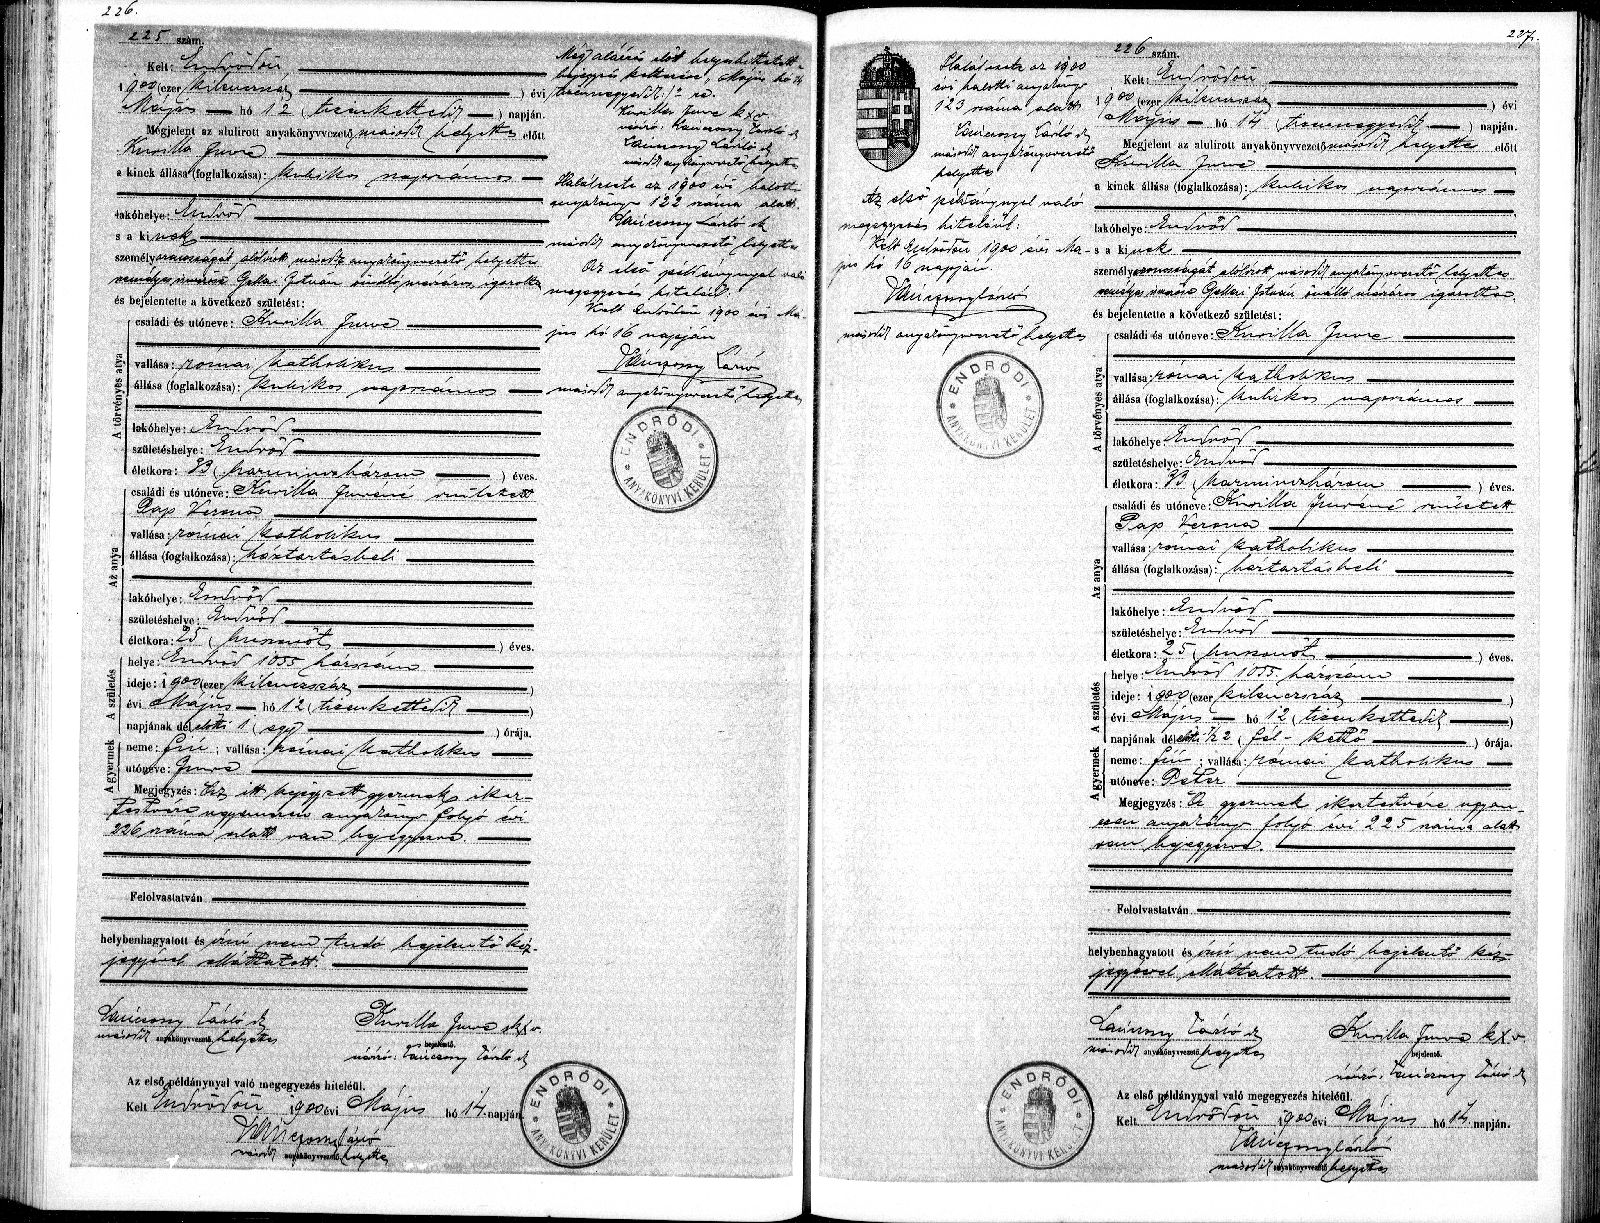 226.
225 szám.
Kelt: Endrődön
1900 (ezer kilenczszáz) évi
Május hó 12 (tizenkettedik) napján.
Megjelent az alulirott anyakönyvvezető második helyettes előtt
Kurilla Imre
a kinek állása (foglalkozása): kubikos napszámos
lakóhelye: Endrőd
s a kinek
személyazonosságát alólirott második anyakönyvvezető helyettes
István önálló igazolta
és bejelentette a következő születést:
A törvényes atya
családi és utóneve: Kurilla Imre
vallása: római katholikus
állása (foglalkozása): kubikos napszámos
lakóhelye: Endrőd
születéshelye: Endrőd
életkora: 33 (harminczhárom) éves.
Az anya
családi és utóneve: Kurilla Imréné született
Pap Verona
vallása: római katholikus
állása (foglalkozása): háztartásbeli
lakóhelye: Endrőd
születéshelye: Endrőd
életkora: 25 (huszonöt) éves.
A születés
helye: Endrőd 1055 házszám
ideje: 1900 (ezer kilenczszáz)
évi Május hó 12 (tizenkettedik)
napjának délelőtti 1 (egy) órája.
A gyermek
neme: fiú; vallása: római katholikus
utóneve: Imre
Megjegyzés: Az itt bejegyzett gyermek iker-
testvére ugyanezen anyakönyv folyó évi
226 száma alatt van bejegyezve.
Felolvastatván
helybenhagyatott és írni nem tudó bejelentő kéz-
jegyével elláttatott.
László h
második anyakönyvvezető helyettes
Kurilla Imre k x v
bejelentő.
László h
Az első példánynyal való megegyezés hiteléül.
Kelt Endrődön 1900 évi Május hó 14 napján
László
második anyakönyvvezető helyettes
ENDRŐDI ANYAKÖNYVI KERÜLET
Még aláirás előtt
bejegyző Május hó 14
Kurilla Imre k x v
László h
László h
második anyakönyvvezető helyettes
Halálesete az 1900 évi halotti
anyakönyv 122 száma alatt.
László h
második anyakönyvvezető helyettes
Az első példánynyal való
megegyezés hiteléül.
Kelt Endrődön 1900 évi Má-
jus hó 16 napján
László
második anyakönyvvezető helyettes
ENDRŐDI ANYAKÖNYVI KERÜLET
227.
Halálesete az 1900
évi halotti anyakönyv
123 száma alatt
László h
második anyakönyvvezető
helyettes
Az első példánynyal való
megegyezés hiteléül.
Kelt Endrődön 1900 évi Má-
jus hó 16 napján.
László
második anyakönyvvezető helyettes
ENDRŐDI ANYAKÖNYVI KERÜLET
226 szám.
Kelt: Endrődön
1900 (ezer kilenczszáz) évi
Május hó 14 (tizennegyedik) napján.
Megjelent az alulirott anyakönyvvezető második helyettes előtt
Kurilla Imre
a kinek állása (foglalkozása): kubikos napszámos
lakóhelye: Endrőd
s a kinek
személyazonosságát alólirott második anyakönyvvezető helyettes
István önálló igazolta
és bejelentette a következő születést:
A törvényes atya
családi és utóneve: Kurilla Imre
vallása: római katholikus
állása (foglalkozása): kubikos napszámos
lakóhelye: Endrőd
születéshelye: Endrőd
életkora: 33 (harminczhárom) éves.
Az anya
családi és utóneve: Kurilla Imréné született
Pap Verona
vallása: római katholikus
állása (foglalkozása): háztartásbeli
lakóhelye: Endrőd
születéshelye: Endrőd
életkora: 25 (huszonöt) éves.
A születés
helye: Endrőd 1055 házszám
ideje: 1900 (ezer kilenczszáz)
évi Május hó 12 (tizenkettedik)
napjának délelőtti 1/2 2 (fél-kettő) órája.
A gyermek
neme: fiú; vallása: római katholikus
utóneve: Péter
Megjegyzés: A gyermek ikertestvére ugyan-
ezen anyakönyv folyó évi 225 száma alatt
van bejegyezve.
Felolvastatván
helybenhagyatott és írni nem tudó bejelentő kéz-
jegyével elláttatott.
László h
második anyakönyvvezető helyettes
Kurilla Imre k x v
bejelentő.
László h
Az első példánynyal való megegyezés hiteléül.
Kelt Endrődön 1900 évi Május hó 14 napján.
László
második anyakönyvvezető helyettes
ENDRŐDI ANYAKÖNYVI KERÜLET